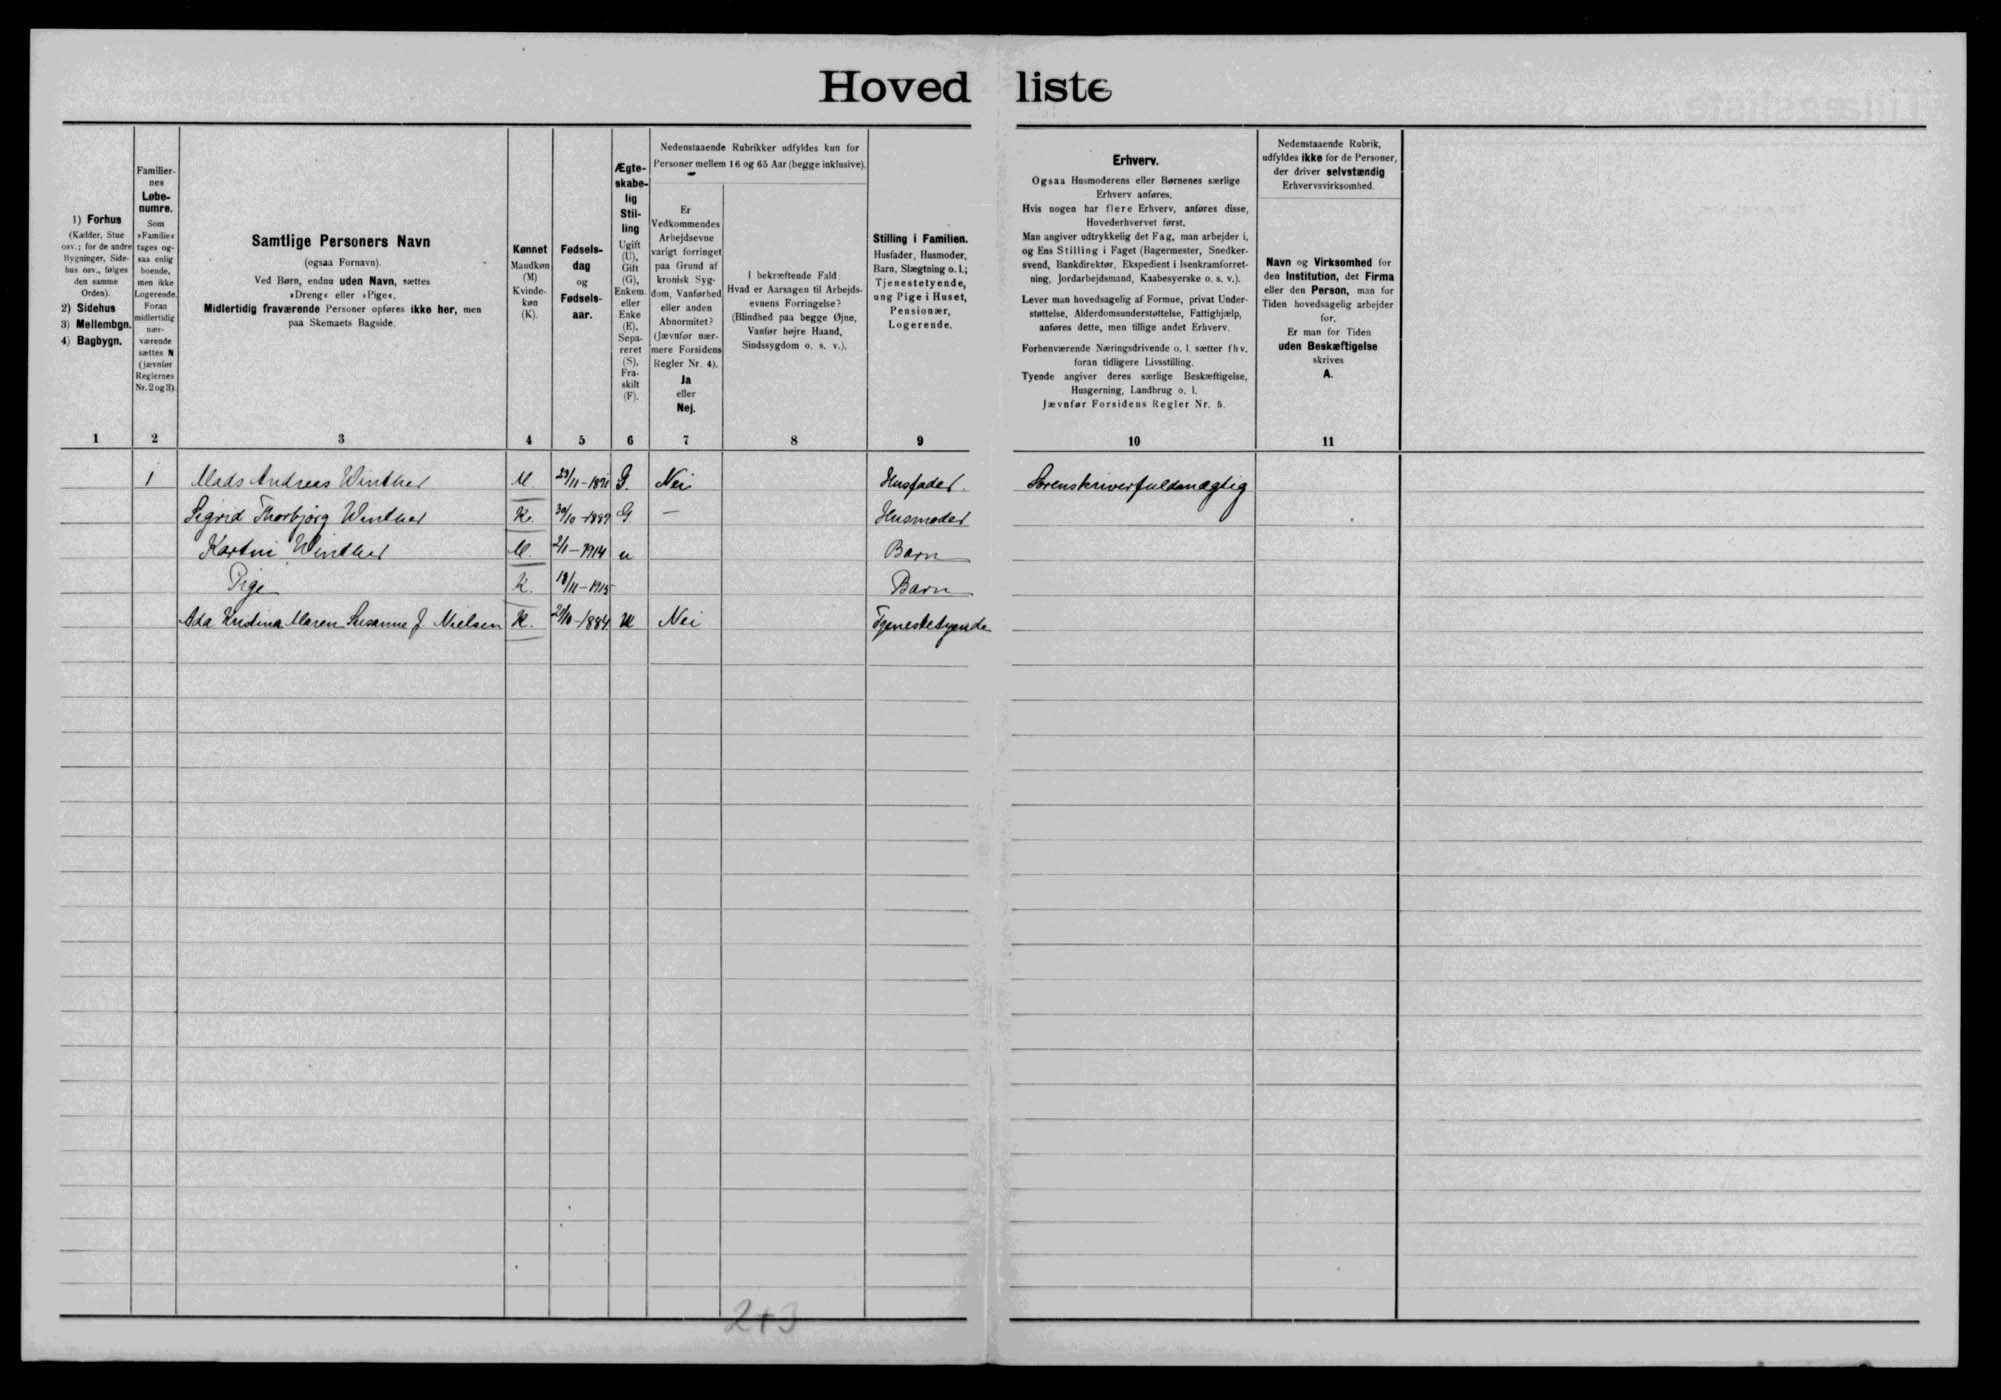 Hovedliste
1) Forhus
(Kælder, Stue
osv.; for de andre
Bygninger, Side-
hus osv., følges
den samme
Orden).
2) Sidehus
3) Mellembgn.
4) Bagbygn.
Familier-
nes
Løbe-
numre.
Som
»Familie«
tages og-
saa enlig
boende,
men ikke
Logerende.
Foran
midlertidig
nær-
værende
sættes N
(jævnfør
Reglernes
Nr. 2 og 3).
Samtlige Personers Navn
(ogsaa Fornavn).
Ved Børn, endnu uden Navn, sættes
»Dreng« eller »Pige«.
Midlertidig fraværende Personer opføres ikke her, men
paa Skemaets Bagside.
Kønnet
Mandkøn
(M)
Kvinde-
køn
(K).
Fødsels-
dag
og
Fødsels-
aar.
Ægte-
skabe-
lig
Stil-
ling
Ugift
(U),
Gift
(G),
Enkem.
eller
Enke
(E),
Sepa-
reret
(S),
Fra-
skilt
(F).
Nedenstaaende Rubrikker udfyldes kun for
Personer mellem 16 og 65 Aar (begge inklusive).
Er
Vedkommendes
Arbejdsevne
varigt forringet
paa Grund af
kronisk Syg-
dom, Vanførhed
eller anden
Abnormitet?
(Jævnfør nær-
mere Forsidens
Regler Nr. 4).
Ja
eller
Nej.
I bekræftende Fald:
Hvad er Aarsagen til Arbejds-
evnens Forringelse?
(Blindhed paa begge Øjne,
Vanfør højre Haand,
Sindssygdom o. s. v.).
Stilling i Familien.
Husfader, Husmoder,
Barn, Slægtning o. l.;
Tjenestetyende,
ung Pige i Huset,
Pensionær,
Logerende.
Erhverv.
Ogsaa Husmoderens eller Børnenes særlige
Erhverv anføres.
Hvis nogen har flere Erhverv, anføres disse,
Hovederhvervet først.
Man angiver udtrykkelig det Fag, man arbejder i,
og Ens Stilling i Faget (Bagermester, Snedker-
svend, Bankdirektør, Ekspedient i Isenkramforret-
ning, Jordarbejdsmand, Kaabesyerske o. s. v.).
Lever man hovedsagelig af Formue, privat Under-
støttelse, Alderdomsunderstøttelse, Fattighjælp,
anføres dette, men tillige andet Erhverv.
Forhenværende Næringsdrivende o. l. sætter fhv.
foran tidligere Livsstilling.
Tyende angiver deres særlige Beskæftigelse,
Husgerning, Landbrug o. l.
Jævnfør Forsidens Regler Nr. 5.
Nedenstaaende Rubrik,
udfyldes ikke for de Personer,
der driver selvstændig
Erhvervsvirksomhed.
Navn og Virksomhed for
den Institution, det Firma
eller den Person, man for
Tiden hovedsagelig arbejder
for.
Er man for Tiden
uden Beskæftigelse
skrives
A.
1 2 3 4 5 6 7 8 9 10 11
1 Mads Andreas Winther M. 23/11-1871 G. Nei Husfader. Sorenskriverfuldmægtig
Sigrid Thorbjørg Winther K. 30/10-1887 G — Husmoder
Winther M. 2/1-1914 u Barn
Pige K. 18/11-1915 Barn
Ada Kristina Maren Susanne J. Nielsen K. 1884 U Nei Tjenestetyende
2+3